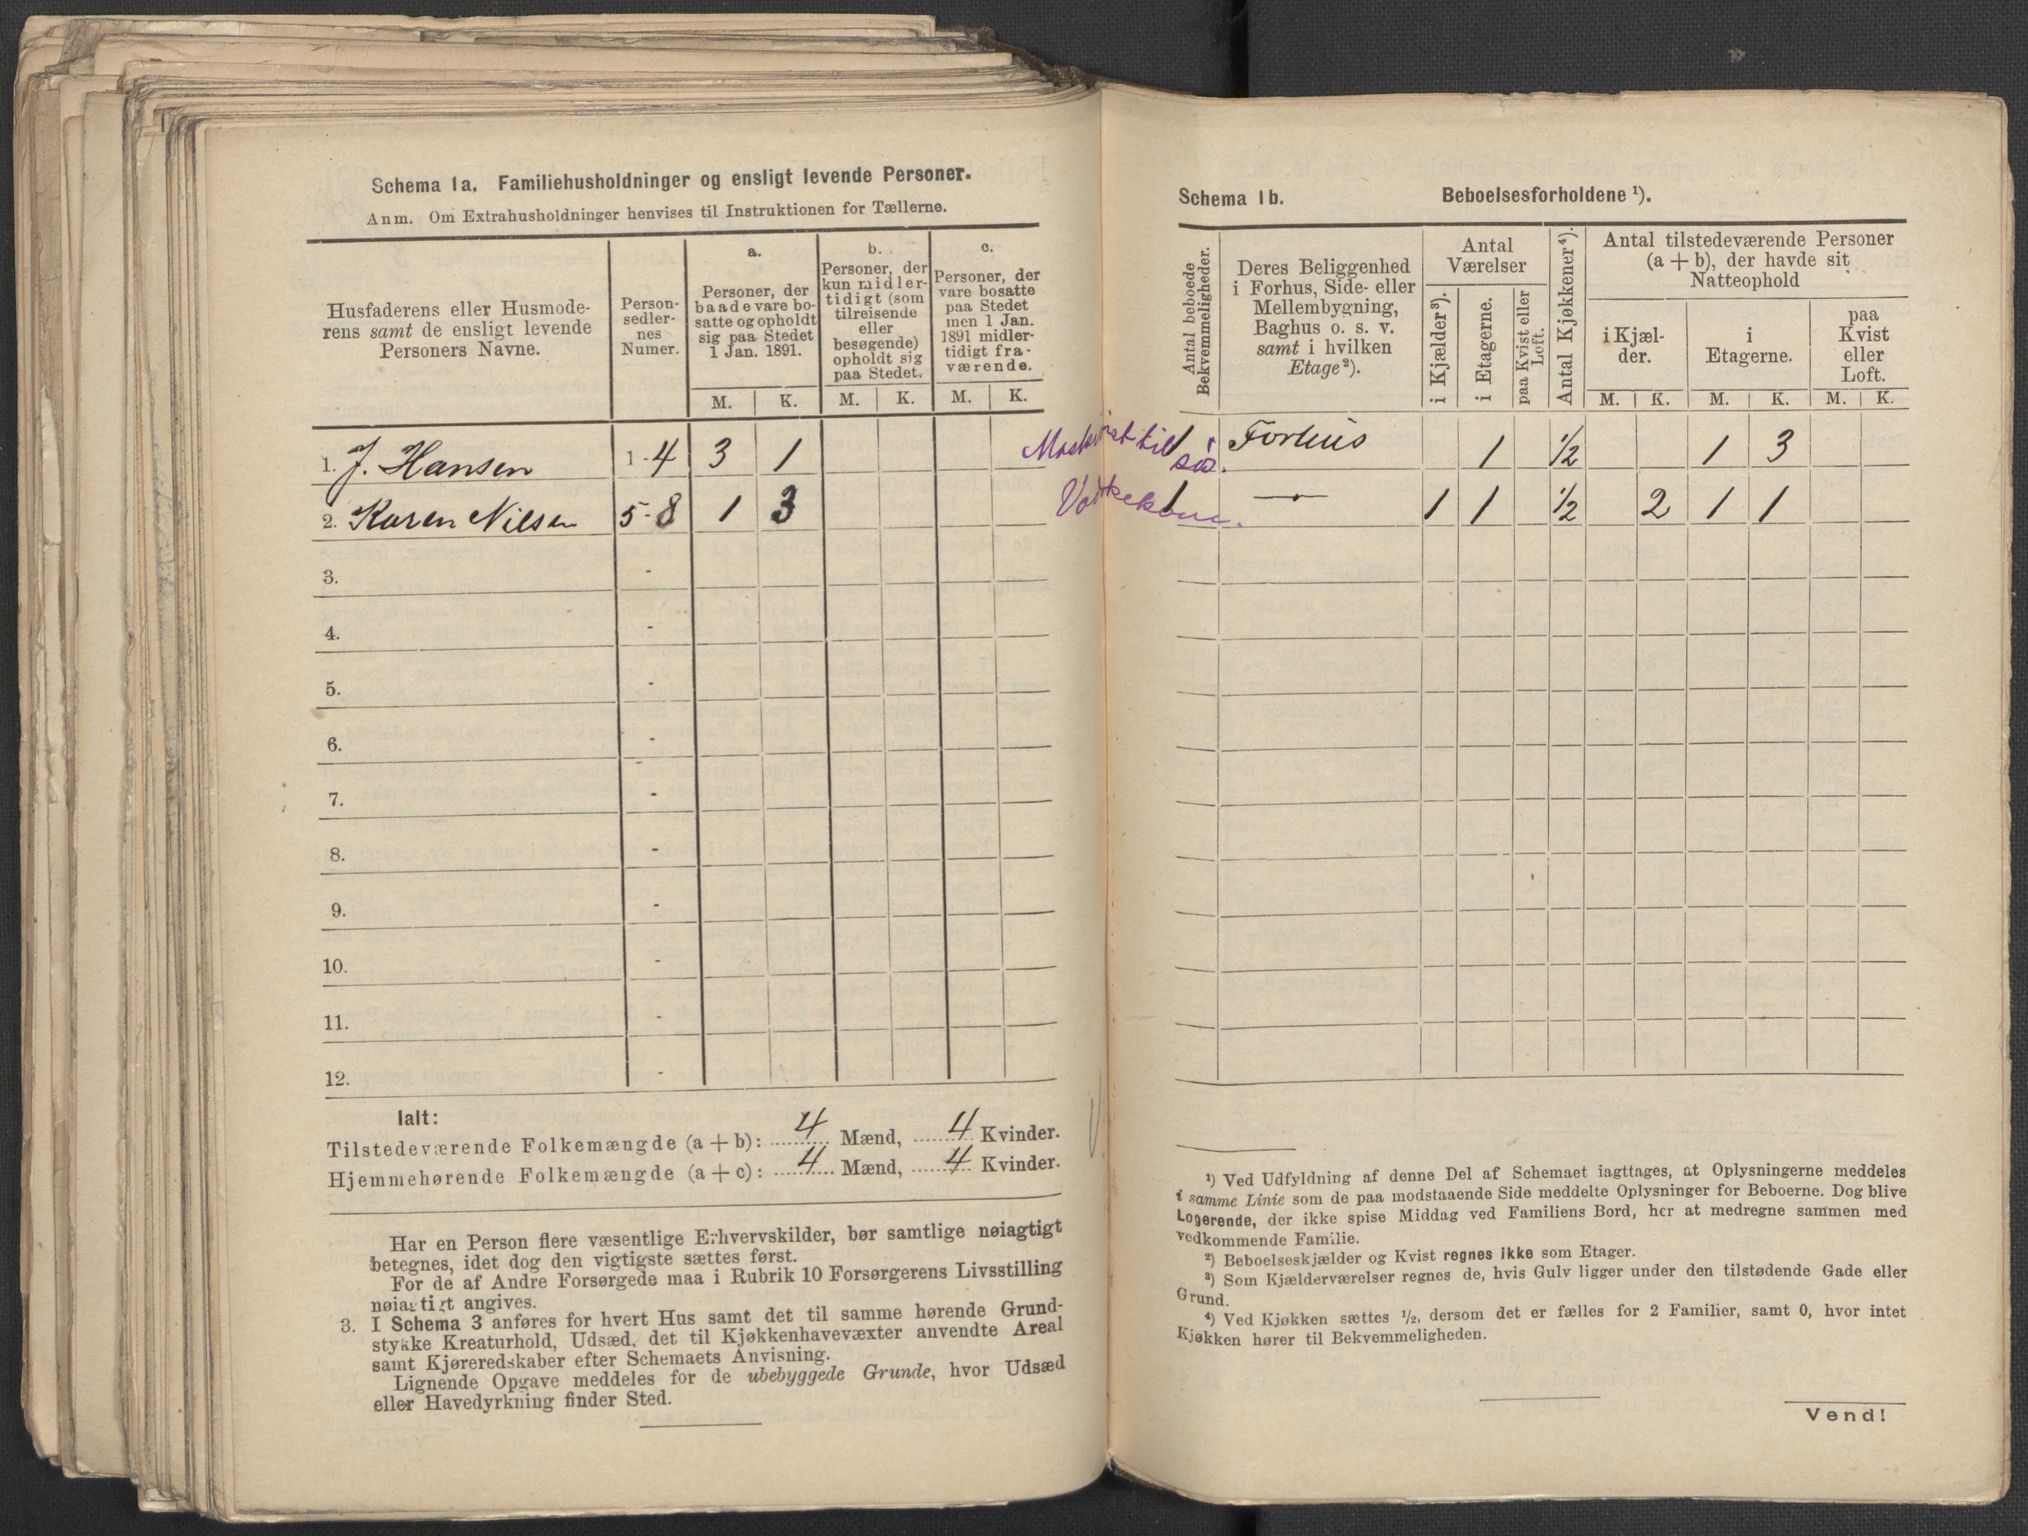 Schema 1a. Familiehusholdninger og ensligt levende Personer.
Anm. Om Extrahusholdninger henvises til Instruktionen for Tællerne.
Husfaderens eller Husmode-
rens samt de ensligt levende
Personers Navne.
Person-
sedler-
nes
Numer.
a.
Personer, der
baade vare bo-
satte og opholdt
sig paa Stedet
1 Jan. 1891.
b.
Personer, der
kun midler-
tidigt (som
tilreisende
eller
besøgende)
opholdt sig
paa Stedet.
c.
Personer, der
vare bosatte
paa Stedet
men 1 Jan.
1891 midler-
tidigt fra-
værende.
M. K. M. K. M. K.
1. J. Hansen 1-4 3 1
2. Karen Nilsen 5-8 1 3
3. -
4. -
5. -
6. -
7. -
8. -
9. -
10. -
11. -
12. -
Ialt:
Tilstedeværende Folkemængde (a+b): 4 Mænd, 4 Kvinder.
Hjemmehørende Folkemængde (a+c): 4 Mænd, 4 Kvinder.
Har en Person flere væsentlige Erhvervskilder, bør samtlige nøiagtigt
betegnes, idet dog den vigtigste sættes først.
For de af Andre Forsørgede maa i Rubrik 10 Forsørgerens Livsstilling
nøiagtigt angives.
3. I Schema 3 anføres for hvert Hus samt det til samme hørende Grund-
stykke Kreaturhold, Udsæd, det til Kjøkkenhavevæxter anvendte Areal
samt Kjøreredskaber efter Schemaets Anvisning.
Lignende Opgave meddeles for de ubebyggede Grunde, hvor Udsæd
eller Havedyrkning finder Sted.
Schema 1b. Beboelsesforholdene ¹).
Antal beboede
Bekvemmeligheder.
Deres Beliggenhed
i Forhus, Side- eller
Mellembygning,
Baghus o. s. v.
samt i hvilken
Etage²).
Antal
Værelser
i Kjælder³).
i Etagerne.
paa Kvist eller
Loft.
Antal Kjøkkener⁴).
Antal tilstedeværende Personer
(a+b), der havde sit
Natteophold
i Kjæl-
der.
i
Etagerne.
paa
Kvist
eller
Loft.
M. K. M. K. M. K.
til 1 Forhus 1 ½ 1 3
søs.
1 — " — 1 1 ½ 2 1 1
¹) Ved Udfyldning af denne Del af Schemaet iagttages, at Oplysningerne meddeles
i samme Linie som de paa modstaaende Side meddelte Oplysninger for Beboerne. Dog blive
Logerende, der ikke spise Middag ved Familiens Bord, her at medregne sammen med
vedkommende Familie.
²) Beboelseskjælder og Kvist regnes ikke som Etager.
³) Som Kjælderværelser regnes de, hvis Gulv ligger under den tilstødende Gade eller
Grund.
⁴) Ved Kjøkken sættes ½, dersom det er fælles for 2 Familier, samt 0, hvor intet
Kjøkken hører til Bekvemmeligheden.
Vend!